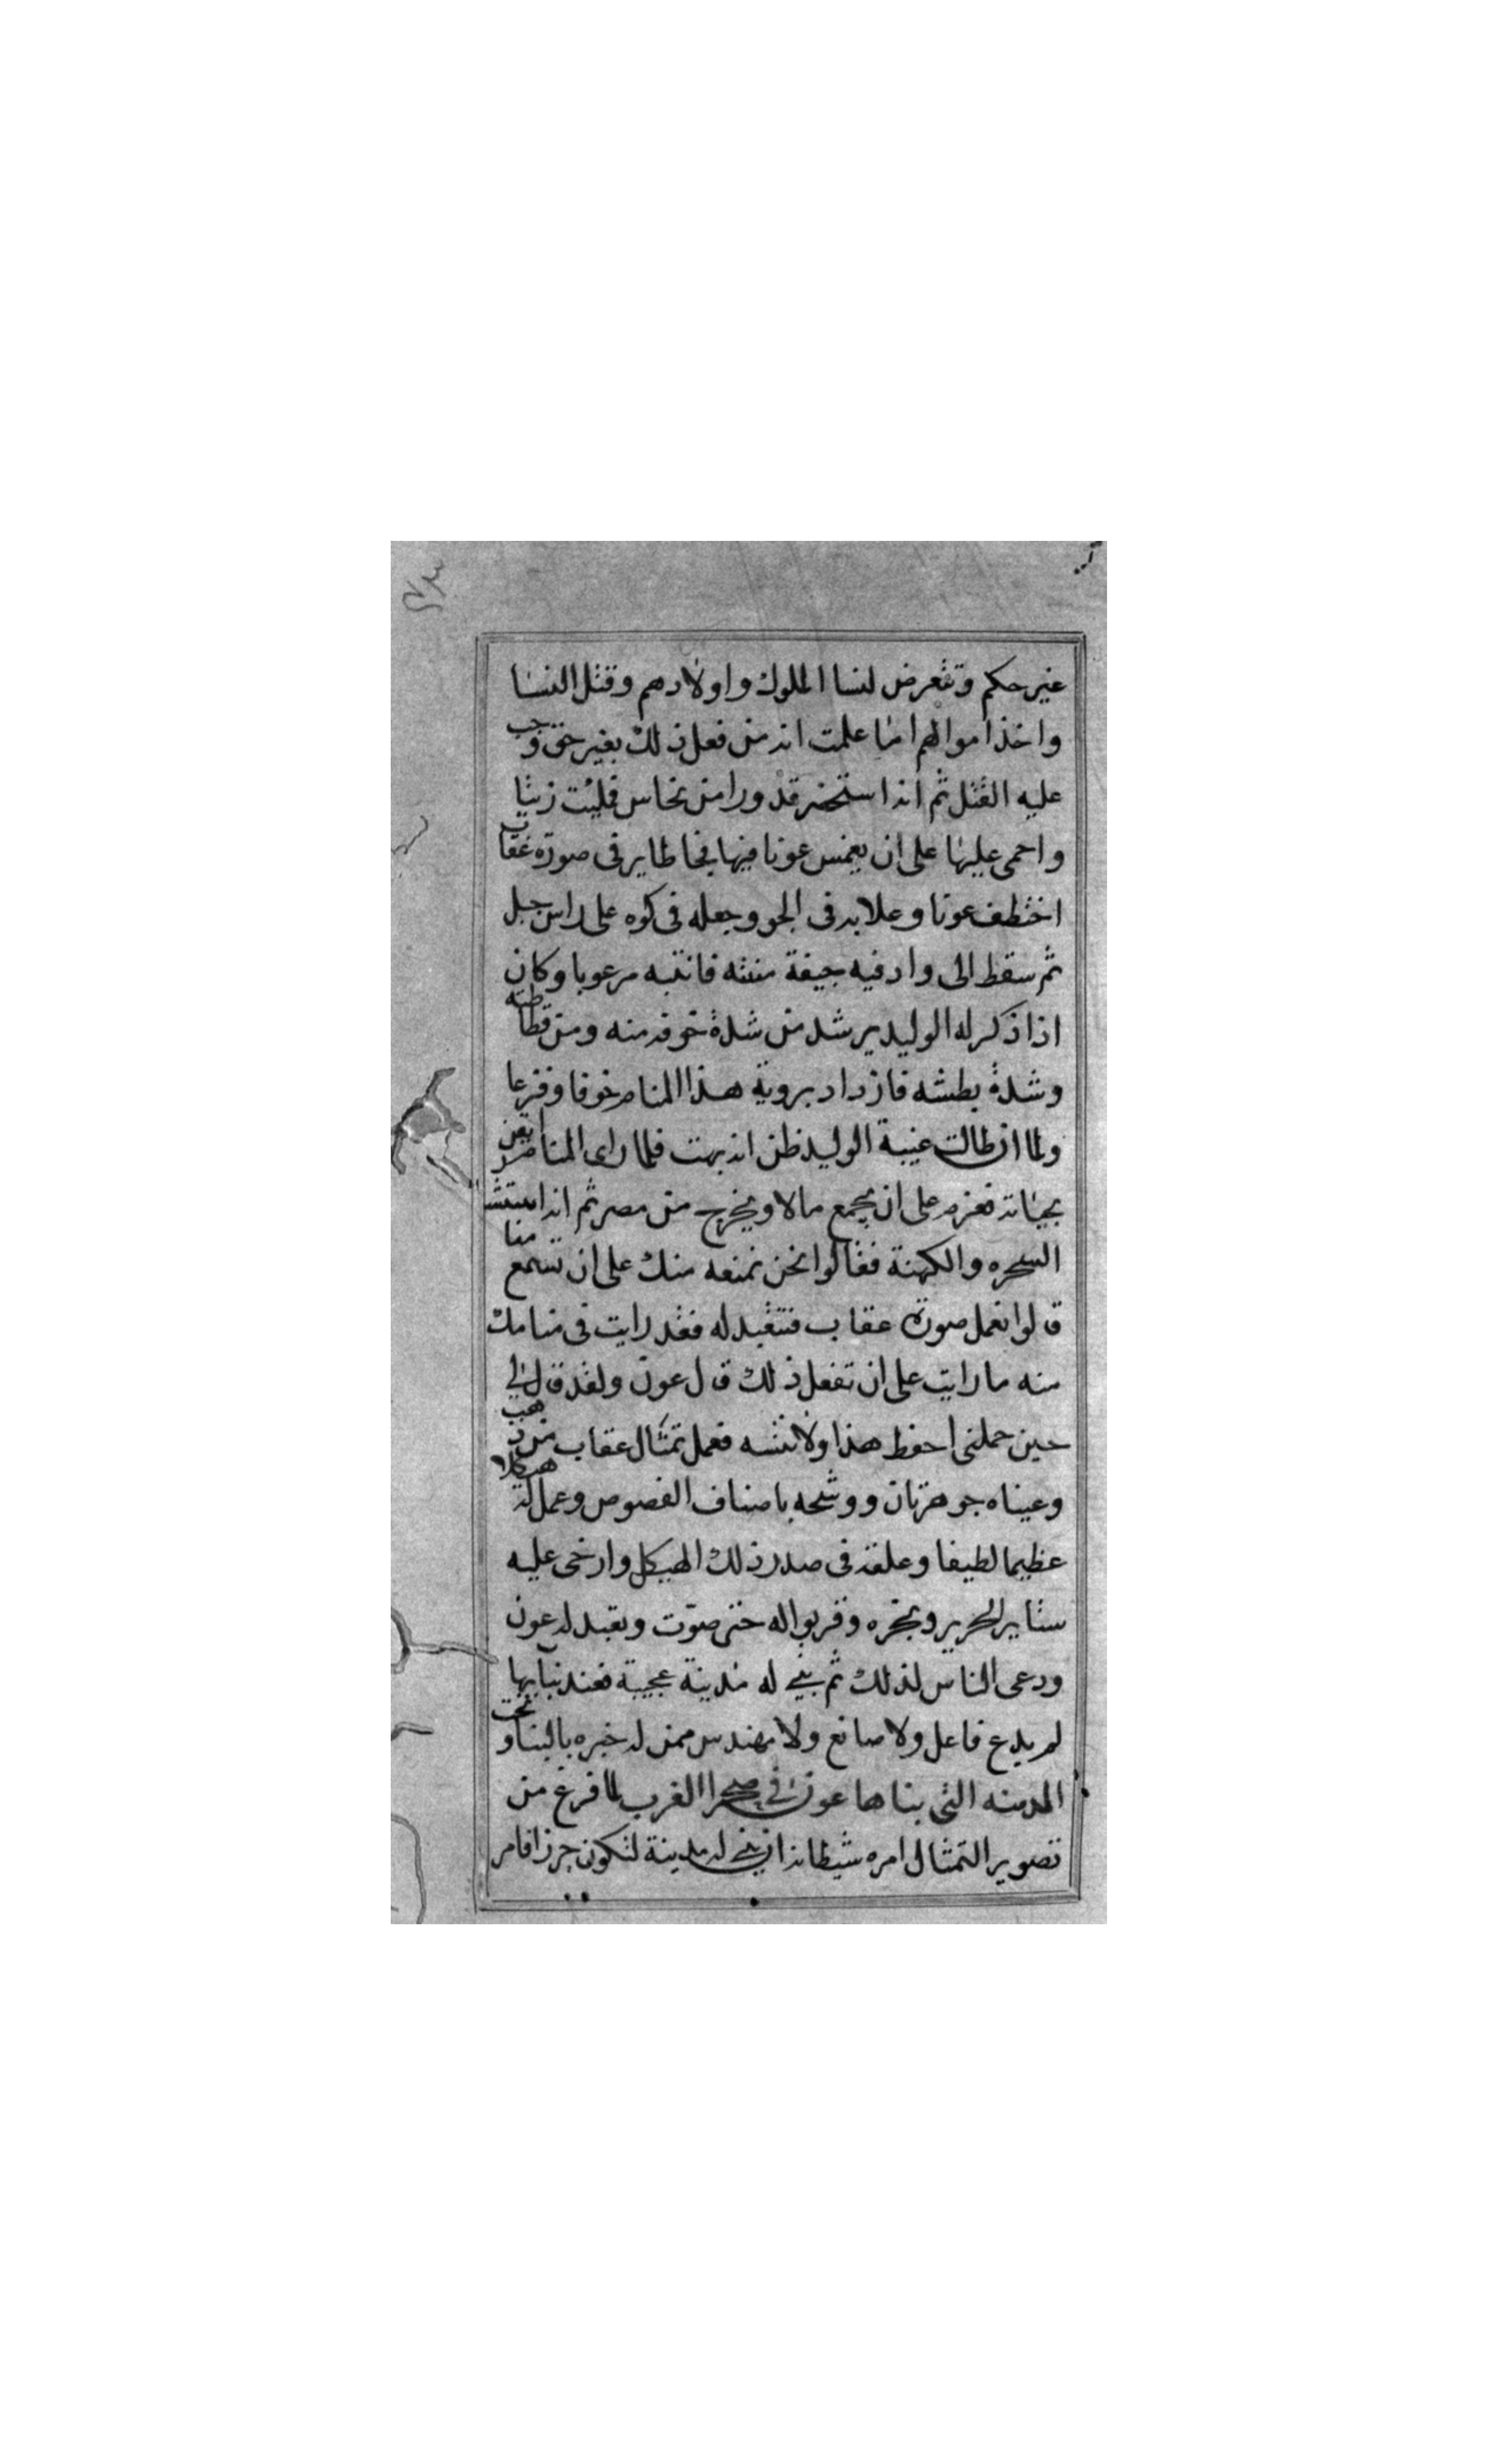 غير حكم وتتعرض لنسا الملوك واولادهم وقتل النسا
واخذ اموالهم اما علمت انه من فعل ذلك بغير حق وجب
عليه القتل ثم انه استحضر قدورا من نحاس فمليت زيتا
واحمى عليها على ان يغمس عونا فيها فجا طاير فى صورة عقاب
اختطف عونا وعلا به فى الجو وجعله فى كوه على راس جبل
ثم سقط الى واد فيه جيفة منتنه فانتبه مرعوبا وكان
اذا ذكر له الوليد يرشد من شدة خوفه منه ومن
وشدة بطشه فازداد بروية هذا المنام خوفا وفزعا
ولما ان طالت غيبة الوليد ظن انه بهت فلما راى المنام ايقن
بحياته فعزم على ان يجمع مالا ويخرج من مصر ثم انه استشر
السحره والكهنة فقالوا نحن نمنعه منك على ان تسمع منا
قالوا نعمل صورة عقاب فتتعبد له فقد رايت فى منامك
منه ما رايت على ان تفعل ذلك قال عون ولقد قال لى
حين حملنى احفظ هذا ولا تنسه فعمل تمثال عقاب من ذهب
وعيناه جوهرتان ووشحه باصناف الفصوص وعمل له هيكلا
عظيما لطيفا وعلقه فى صدر ذلك الهيكل وارخى عليه
ستاير الحرير وبخره وقربوا له حتى صوت وتعبد له عون
ودعى الناس لذلك ثم بنى له مدينة عجيبة فعند بنايها
لم يدع فاعل ولا صانع ولا مهندس ممن له خبره بالبنا ونحت
المدينه التى بناها عون فى صحرا الغرب لما فرغ من
تصوير التمثال امره شيطانه ان يبنى له مدينة لتكون حرزا فامر